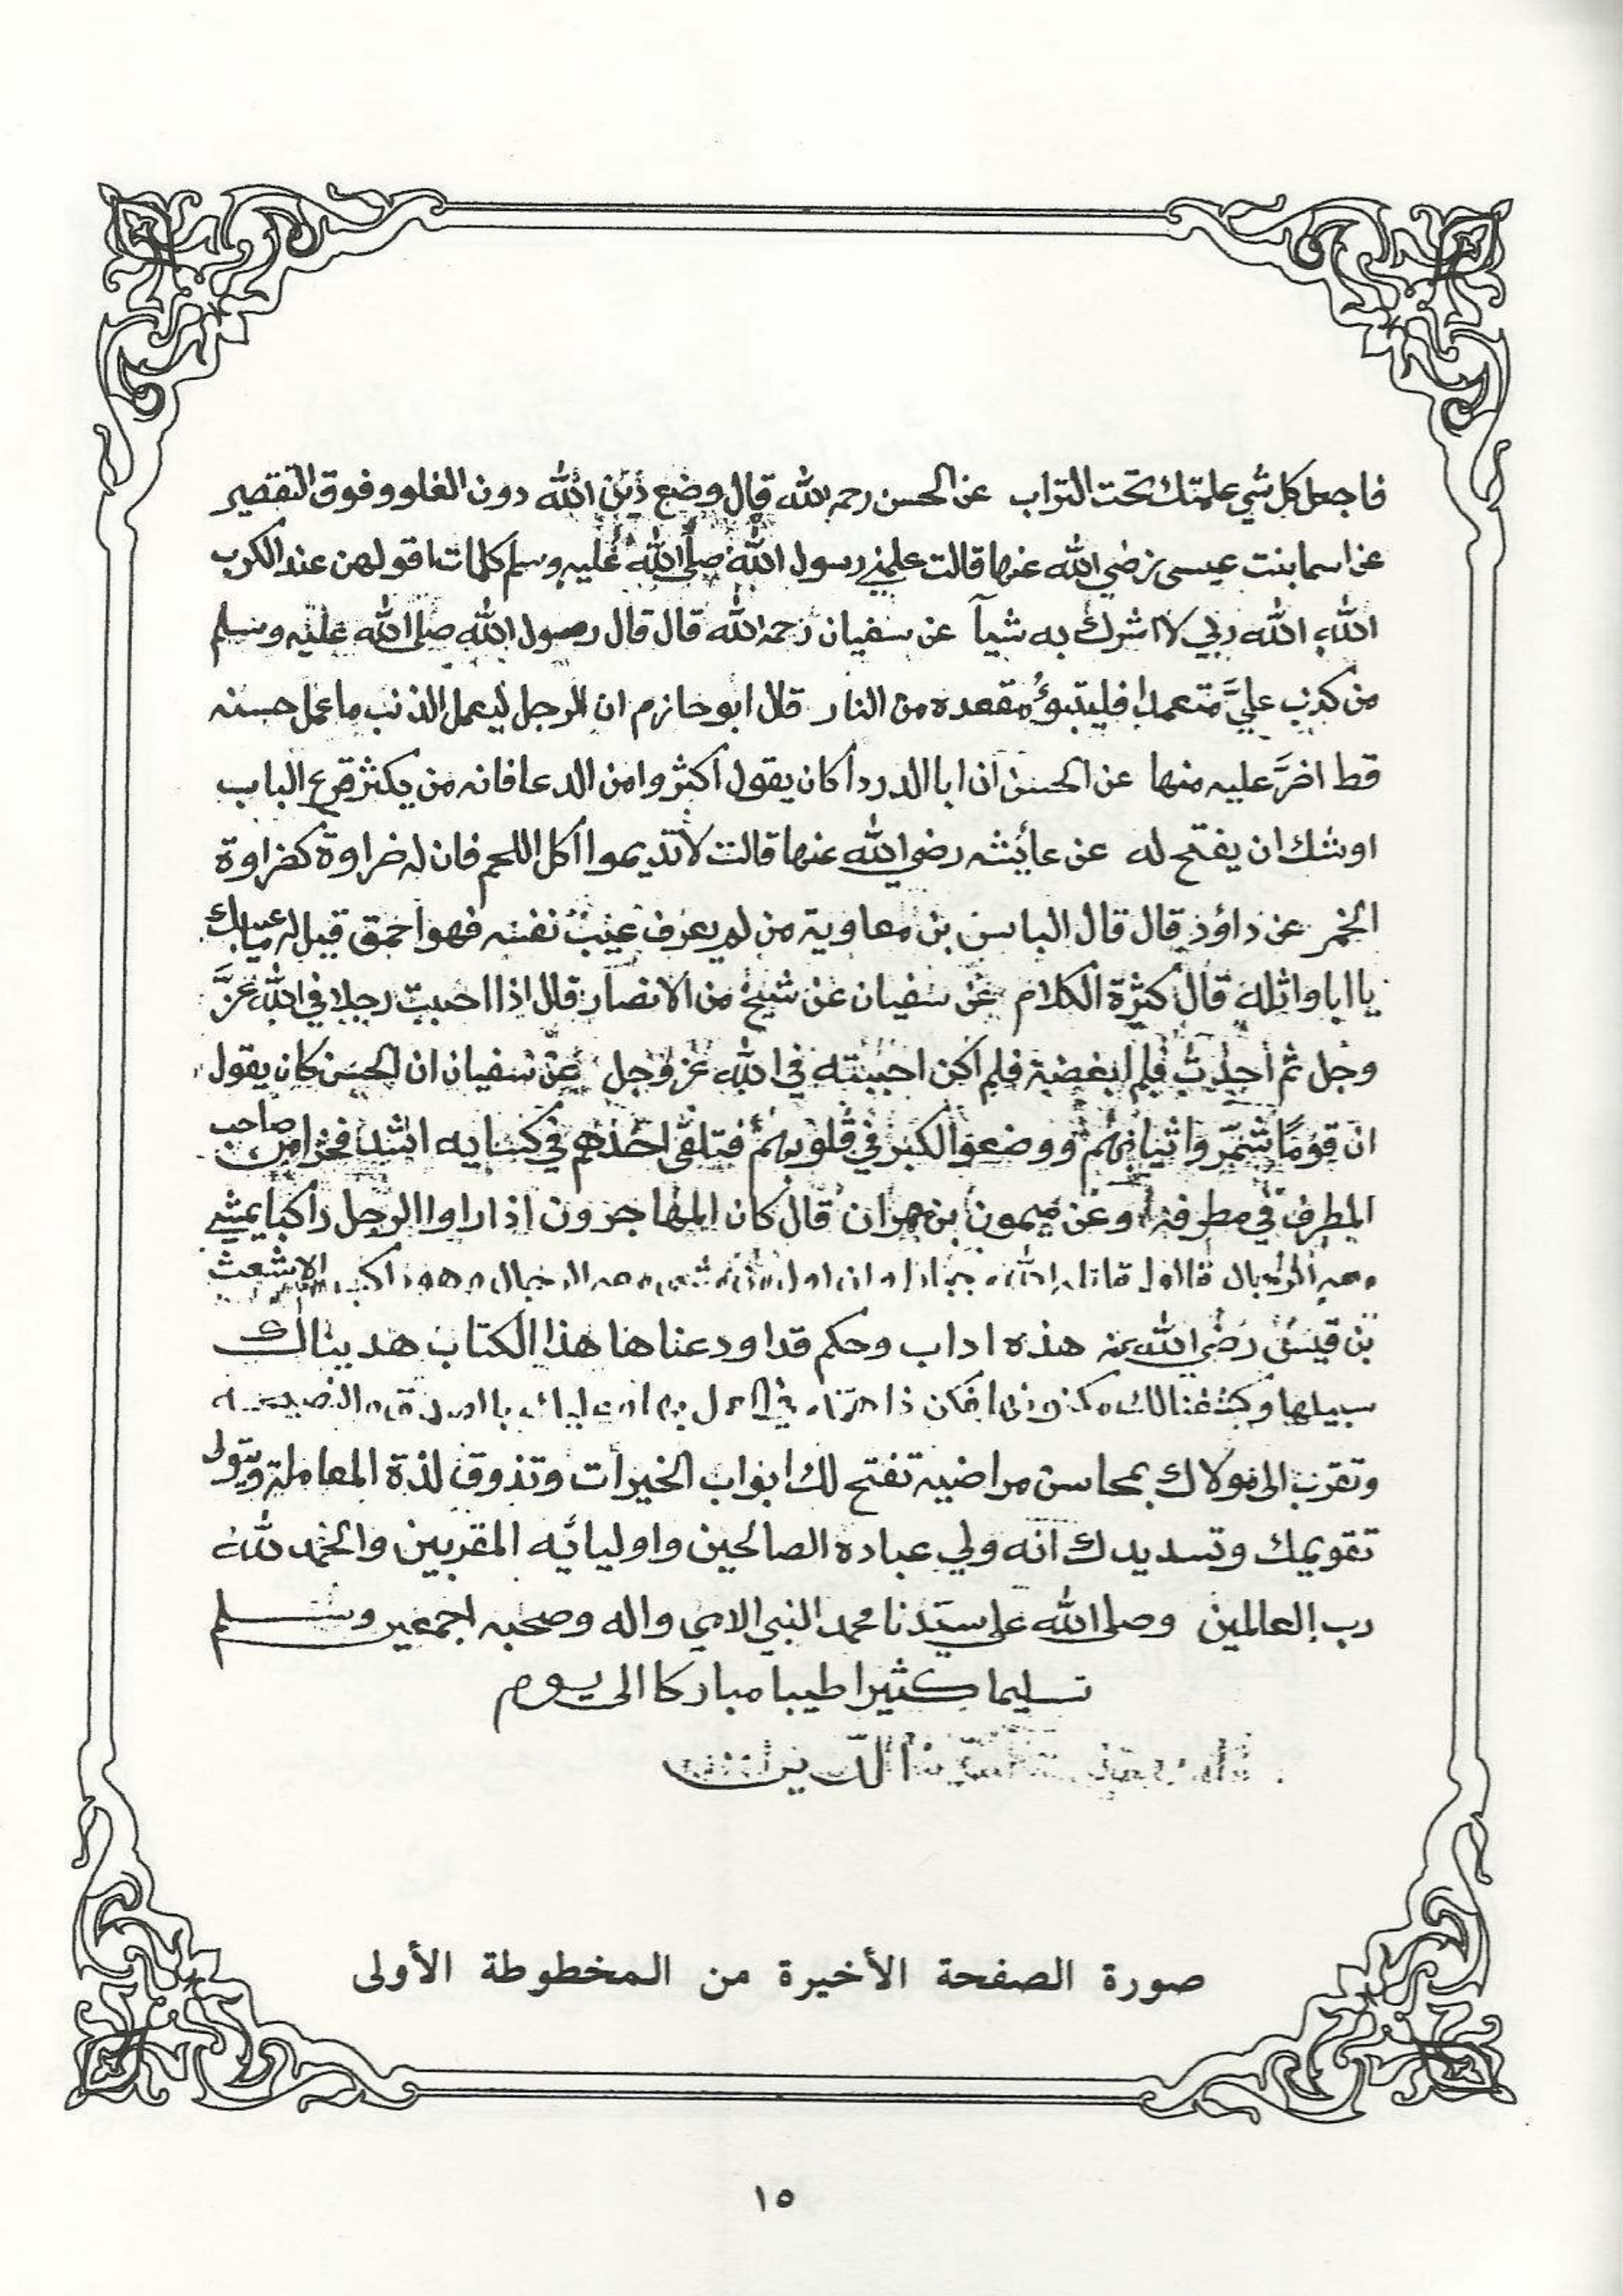 فاجعل كل شي علمتك تحت التراب عن الحسن رحمه الله قال وضع دين الله دون الغلو وفوق التقصير
عن اسما بنت عيسى رضي الله عنها قالت علمني رسول الله صلى الله عليه وسلم كلمات اقولهن عند الكرب
الله الله ربي لا اشرك به شيآ عن سفيان رحمه الله قال قال رسول الله صلى الله عليه وسلم
من كذب عليَّ متعمدا فليتبوُ مقعده من النار قال ابو حازم ان الرجل ليعمل الذنب ما عمل حسنه
قط اضرَّ عليه منها عن الحسن ان ابا الدردا كان يقول اكثروا من الدعا فانه من يكثر قرع الباب
اوشك ان يفتح له عن عايشه رضي الله عنها قالت لا تديموا اكل اللحم فان له ضراوة كضراوة
الخمر عن داؤد قال قال الياس بن معاوية من لم يعرف عيب نفسه فهو احمق قيل له ما عيبك
يا ابا واثله قال كثرة الكلام عن سفيان عن شيخ من الانصار قال اذا احببت رجلا في الله عزَّ
وجل ثم احدث فلم ابغضه فلم اكن احببته في الله عز وجل عن سفيان ان الحسن كان يقول
ان قومًا شمّروا ثيابهم ووضعوا الكبر في قلوبهم فتلقى احدهم في كسايه اشد فخرا من صاحب
المطرف في مطرفه وعن ميمون بن مهران قال كان المهاجرون اذا راوا الرجل راكبا يمشي
معه الرجال قالوا قاتله الله جبارا وان اول من مشى معه الرجال وهو راكب الاشعث
بن قيس رضي الله عنه هذه اداب وحكم قد اودعناها هذا الكتاب هديناك
سبيلها وكشفنا لك مكنونها فكن ذا في العمل بها وعليك بالصدق والنصيحه
وتقرب الى مولاك بمحاسن مراضيه تفتح لك ابواب الخيرات وتذوق لذة المعاملة ويتولى
تقويمك وتسديدك انه ولي عباده الصالحين واوليائه المقربين والحمد لله
رب العالمين وصلى الله على سيدنا محمد النبي الامي واله وصحبه اجمعين وسلم
تسليما كثيرا طيبا مباركا الى يوم
الدين
صورة الصفحة الأخيرة من المخطوطة الأولى
١٥